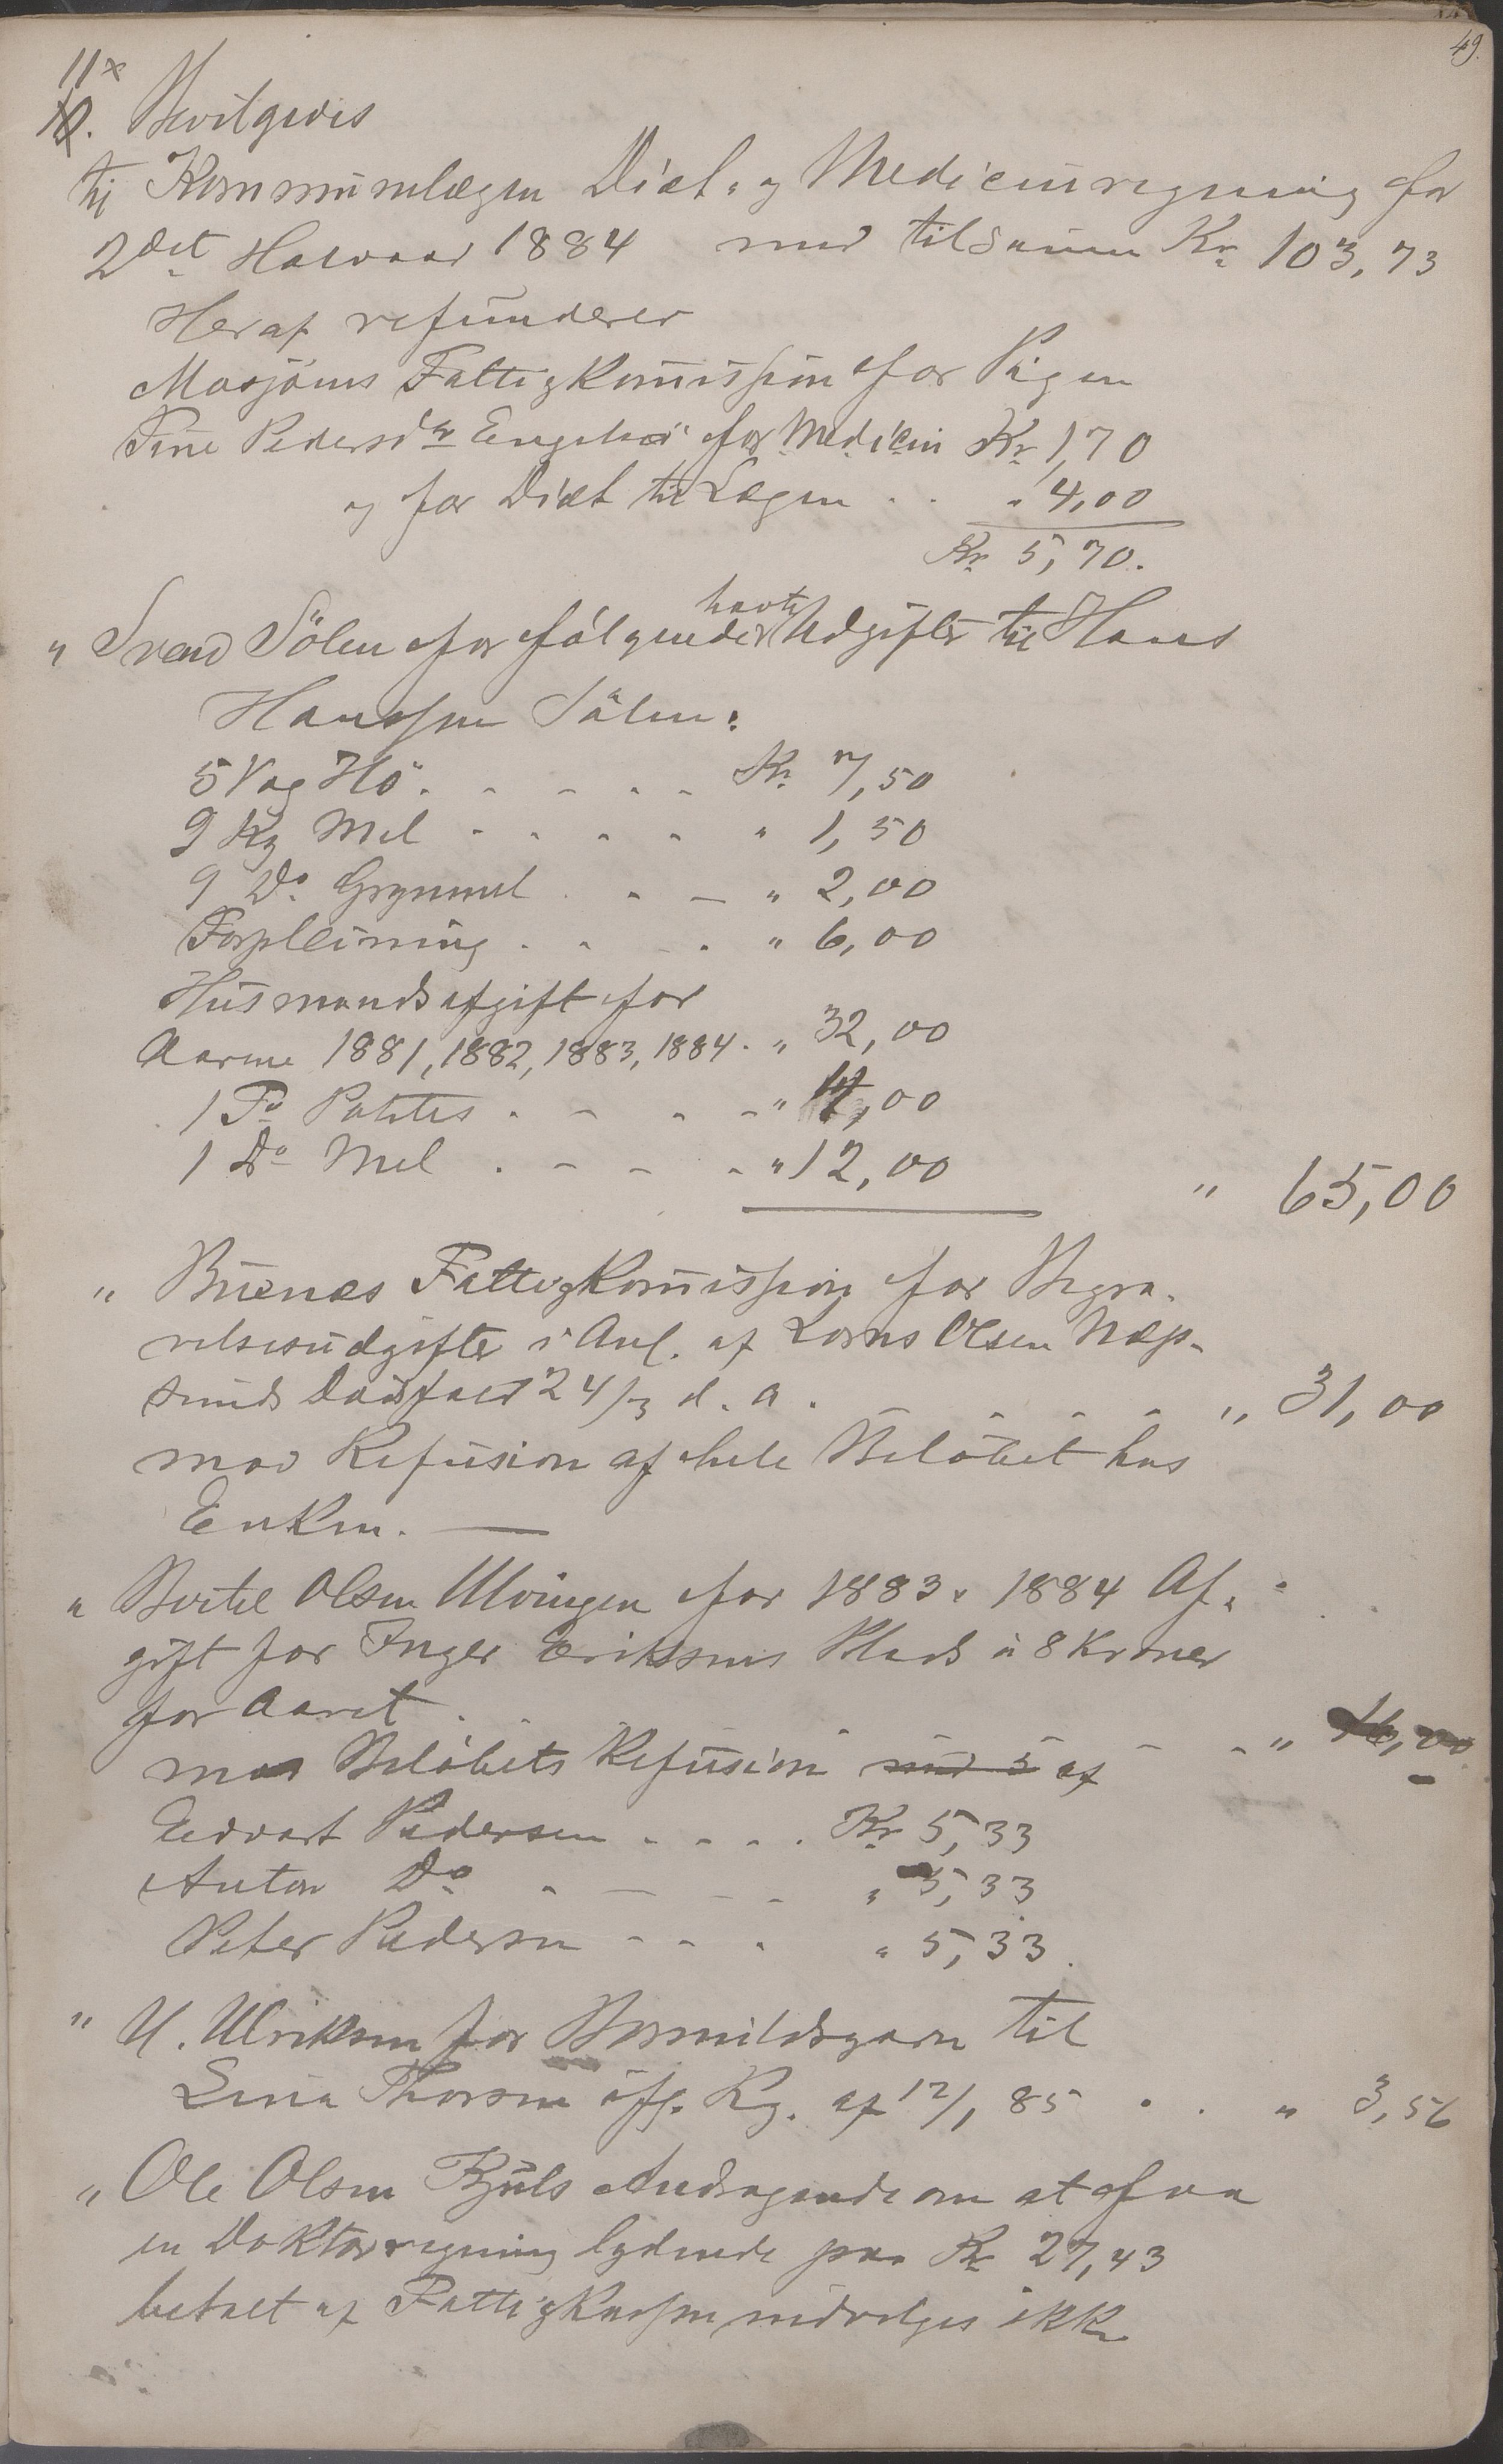 49.
11x
10. Bevilgedes
til Kommunelægen Diæt- og Medicinregning for
2det Halvaar 1884 med tilsamen Kr 103,73
Heraf refunderer
Mosjøens Fattigkommission for Pigen
Tine Pedersdr for Medicin Kr 1,70
og for Diæt til Lægen . . " 4,00
Kr 5,70.
" Svend Sölen for fölgende havte Udgifter til Hans
Hanssen Sölen:
5 Vog Hö . . . . . Kr 7,50
9 Kg Mel . . . . " 1,50
9 Do Grynmel . . . " 2,00
Forpleining . . . " 6,00
Husmandsafgift for
Aarene 1881, 1882, 1883, 1884. " 32,00
1 Td Potetes . . . . " 4,00
1 Do Mel . . . . " 12,00
" 65,00
" Buenes Fattigkommission for Begra-
velsesudgifter i Anl. af Lorns Olsen Næp-
sunds Dødsfald 24/3 d. A. . . . . . " 31,00
mod Refusion af hele Belöbet hos
Enken. —
" Bertel Olsen Ulvingen for 1883 & 1884 Af-
gift for Inger Eriksens Plads à 8 Kroner
for Aaret . . . . . . " 16,00
mod Belöbets Refusion med 5 af
Edvart Pedersen . . . . Kr 5,33
Anton Do . . . . " 5,33
Peter Pedersen . . . " 5,33.
" U. Ulriksen for Bomuldsgarn til
Lina Thorsen ifg. Rg. af 12/1 85 . . " 3,56
" Ole Olsen Kjuls Andragende om at faa
en Doktorregning lydende paa Kr 27,43
betalt af Fattigkassen indvilges ikke